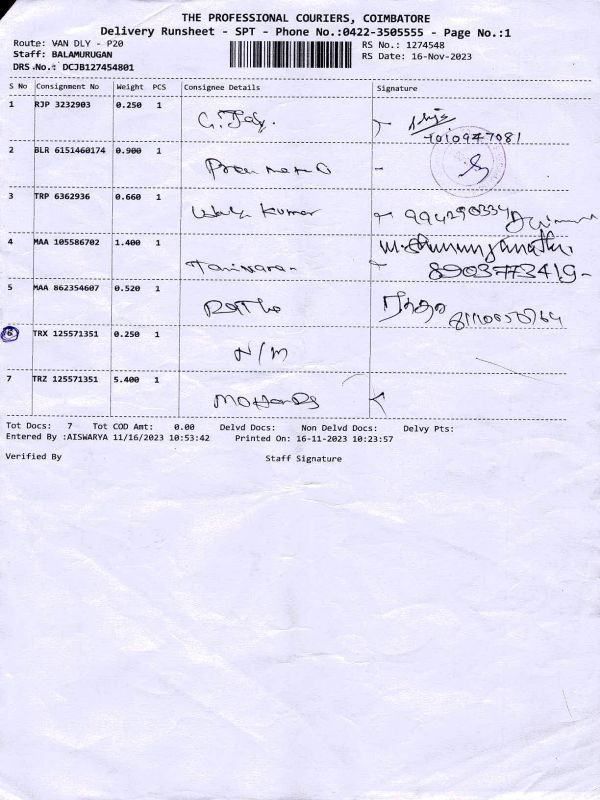 THE PROFESSIONAL COURIERS, COIMBATORE
Delivery Runsheet - SPT - Phone No.:0422-3505555 - Page No.:1
Route: VAN DLY - P20
RS No.: 1274548
Staff: BALAMURUGAN
RS Date: 16-Nov-2023
DRS No.: DCJB127454801
S No Consignment No Weight PCS Consignee Details Signature
1 RJP 3232903 0.250 1
2 BLR 6151460174 0.900 1
3 TRP 6362936 0.660 1 Kumar
4 MAA 105586702 1.400 1
8903773419
5 MAA 862354607 0.520 1
6 TRX 125571351 0.250 1 N/M
7 TRZ 125571351 5.400 1
Tot Docs: 7 Tot COD Amt: 0.00 Delvd Docs: Non Delvd Docs: Delvy Pts:
Entered By :AISWARYA 11/16/2023 10:53:42 Printed On: 16-11-2023 10:23:57
Verified By Staff Signature